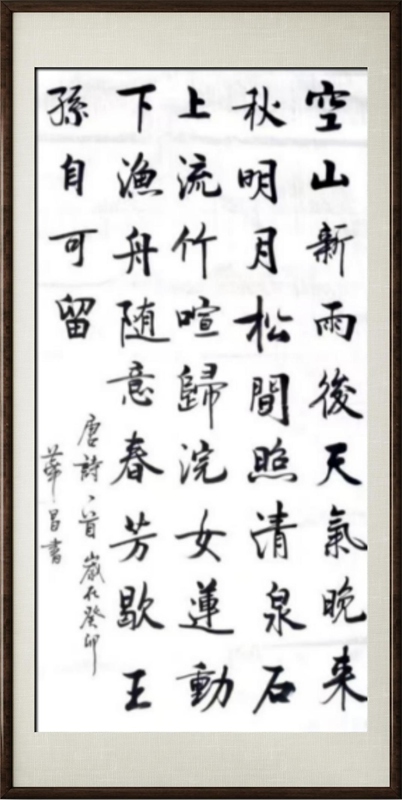 空山新雨後天氣晚来
秋明月松間照清泉石
上流竹喧歸浣女蓮動
下漁舟随意春芳歇王
孫自可留
唐詩一首歲在癸卯
華昌書